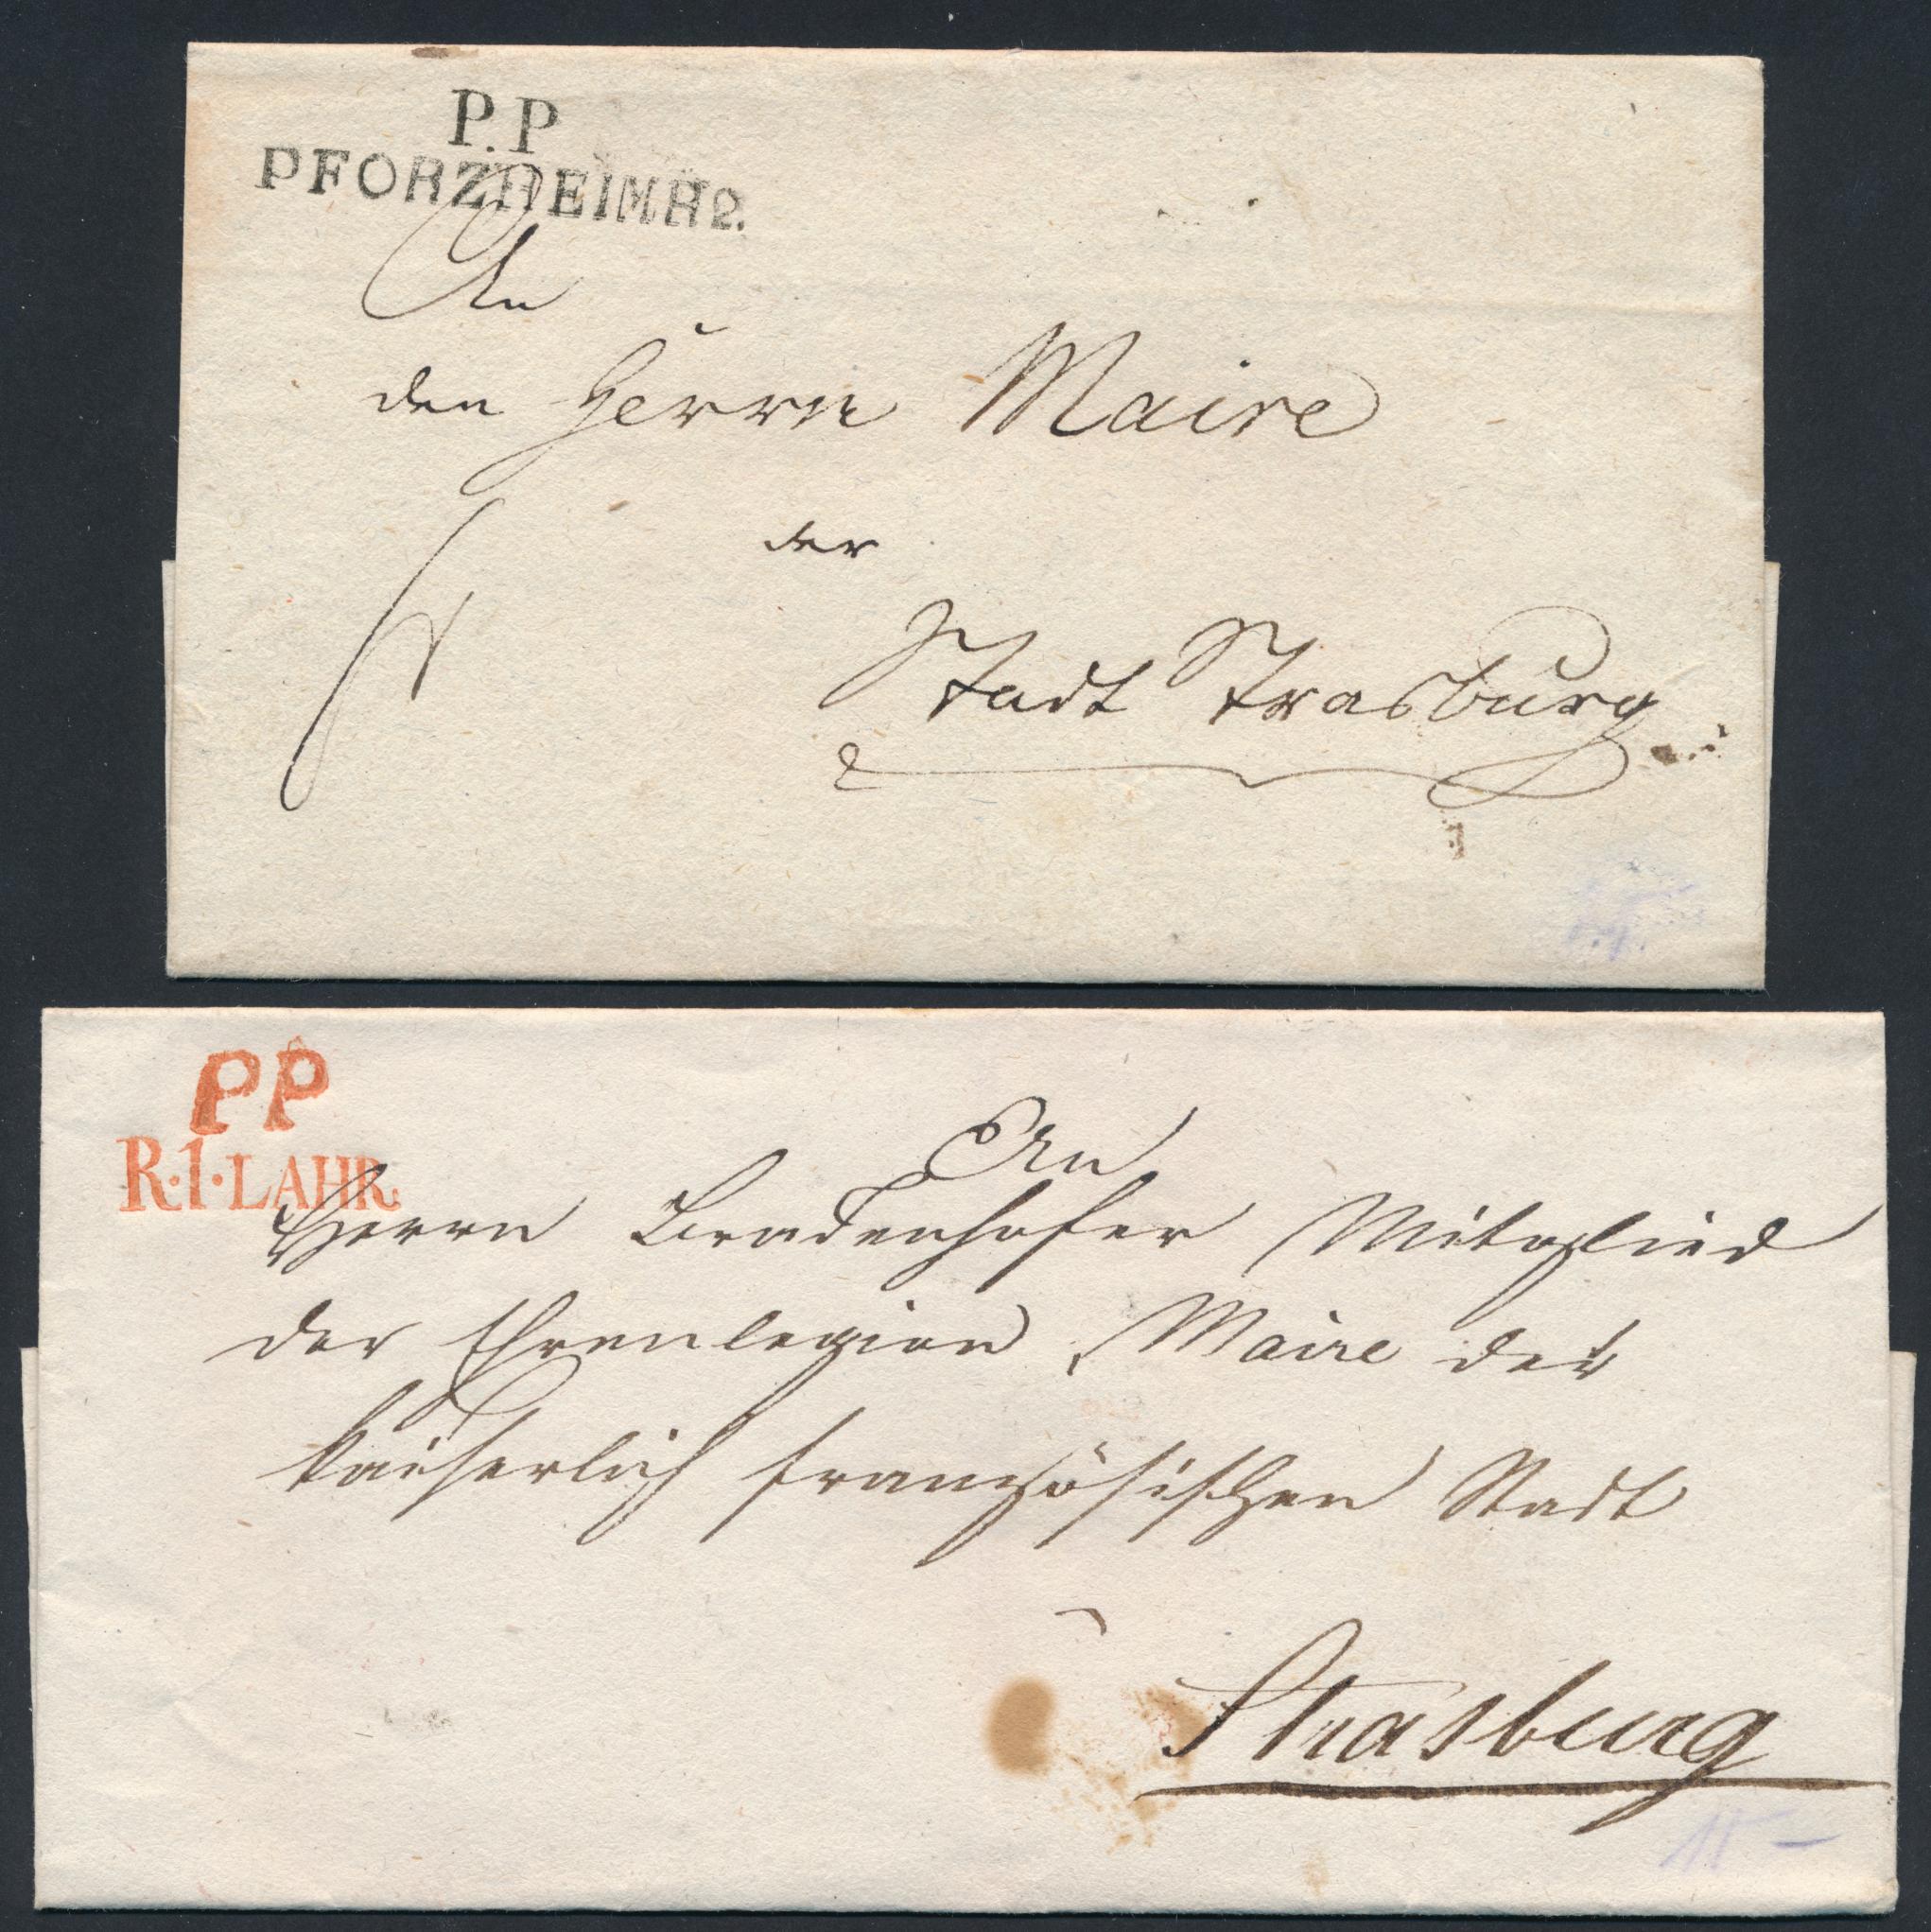 P.P
PFORZHEIM R2.
An
den Herrn Maire
der
Stadt Strasburg
PP
R.1.LAHR.
An
Herrn Brackenhofer Mitglied
der Ehrenlegion, Maire der
kaiserlich französischen Stadt
Strasburg